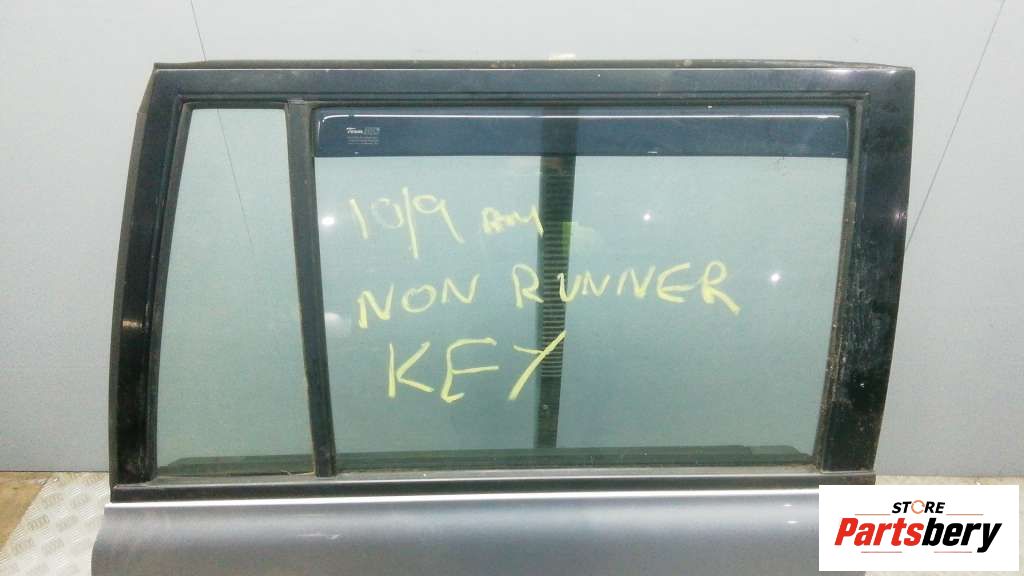 Team
10/9 AM
NON RUNNER
KEY
STORE
Partsbery